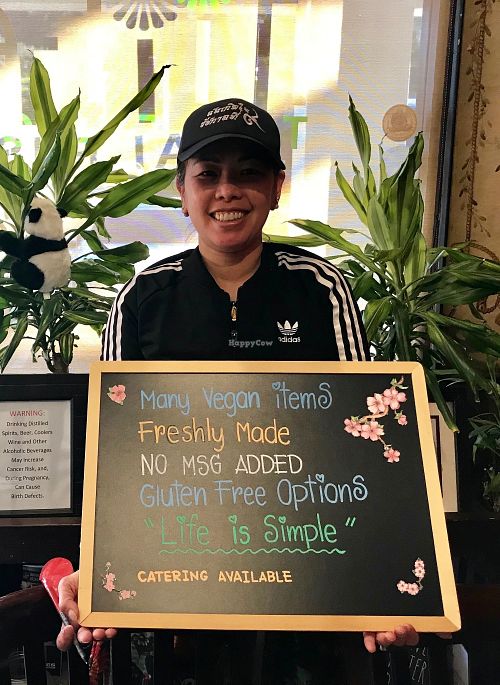 adidas
HappyCow
Many Vegan items
Freshly Made
NO MSG ADDED
Gluten Free Options
"Life is Simple"
CATERING AVAILABLE
WARNING:
Drinking Distilled
Spirits, Beer, Coolers
Wine and Other
Alcoholic Beverages
May Increase
Cancer Risk, and,
During Pregnancy,
Can Cause
Birth Defects.